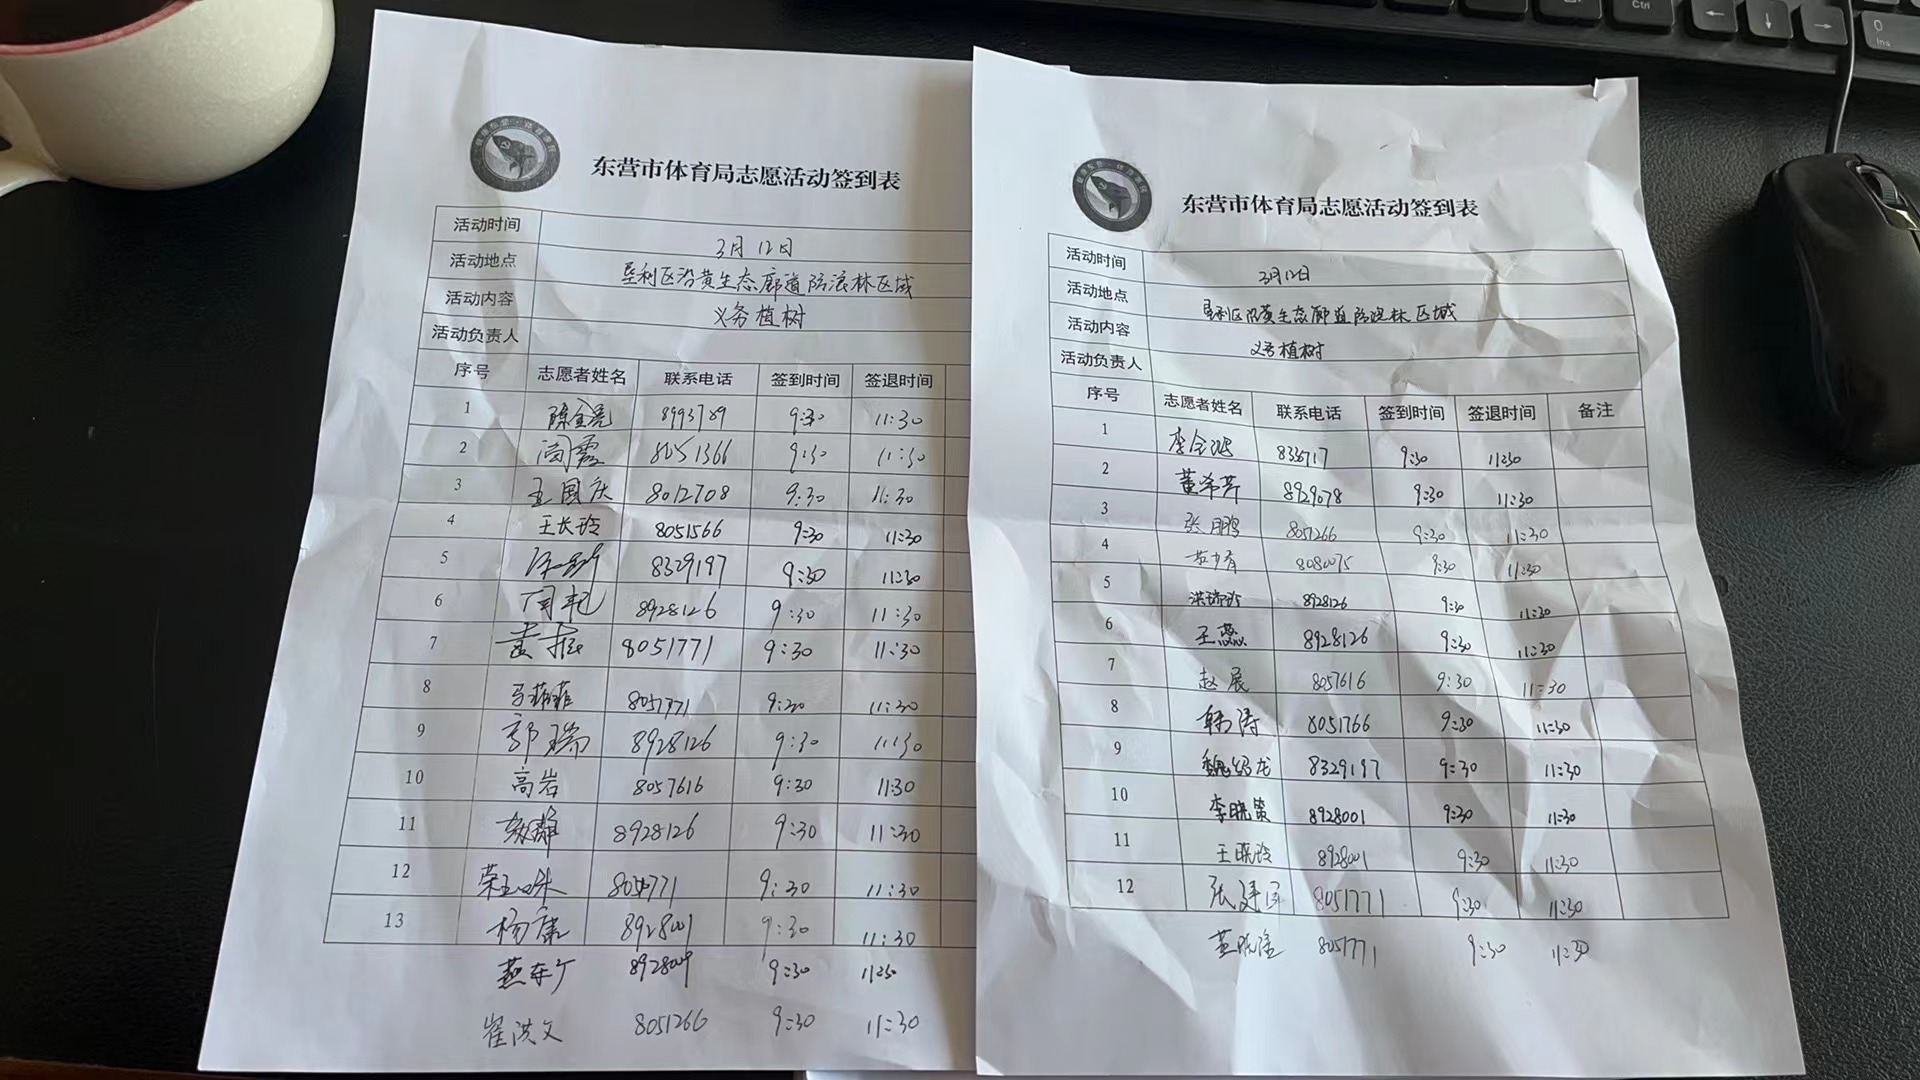 东营市体育局志愿活动签到表
活动时间 3月12日
活动地点 垦利区沿黄生态廊道防浪林区域
活动内容 义务植树
活动负责人
序号 志愿者姓名 联系电话 签到时间 签退时间
1 陈金亮 8993789 9:30 11:30
2 闫霞 8051366 9:30 11:30
3 王国庆 8012708 9:30 11:30
4 王长玲 8051566 9:30 11:30
5 8329197 9:30 11:30
6 8928126 9:30 11:30
7 8051771 9:30 11:30
8 马菲菲 9:30 11:30
9 郭瑞 8928126 9:30 11:30
10 高岩 8057616 9:30 11:30
11 8928126 9:30 11:30
12 9:30 11:30
13 杨康 8928001 9:30 11:30
燕东广 8928009 9:30 11:30
崔洪文 8051266 9:30 11:30
东营市体育局志愿活动签到表
活动时间 3月12日
活动地点 垦利区沿黄生态廊道防浪林区域
活动内容 义务植树
活动负责人
序号 志愿者姓名 联系电话 签到时间 签退时间 备注
1 9:30 11:30
2 董希芹 8929078 9:30 11:30
3 张鹏 8051266 9:30 11:30
4 9:30 11:30
5 8928126 9:30 11:30
6 王燕 8928126 9:30 11:30
7 赵展 8057616 9:30 11:30
8 韩涛 8051766 9:30 11:30
9 8329197 9:30 11:30
10 8928001 9:30 11:30
11 王晓玲 8928001 9:30 11:30
12 张建国 8051771 9:30 11:30
8051771 9:30 11:30
Ctrl
← ↓ →
0
Ins